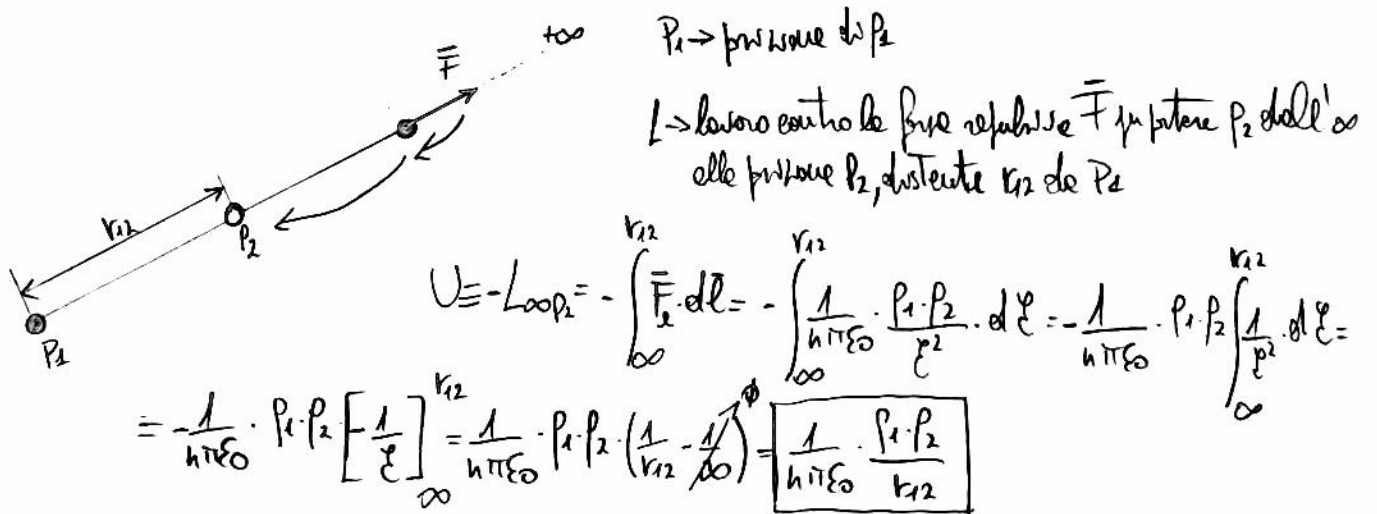 F̅
+∞
r₁₂
P₂
P₁
P₁ → posizione di ρ₁
L → lavoro contro la forza repulsiva F̅ per portare ρ₂ dall'∞
alla posizione P₂, distante r₁₂ da P₁
U ≡ -L∞P₂ = -∫_∞^{r₁₂} F̅₂·dl̅ = -∫_∞^{r₁₂} 1/(4πε₀) · (ρ₁·ρ₂)/ξ² · dξ = -1/(4πε₀) · ρ₁·ρ₂ ∫_∞^{r₁₂} 1/ξ² · dξ =
= -1/(4πε₀) · ρ₁·ρ₂ [-1/ξ]_∞^{r₁₂} = 1/(4πε₀) · ρ₁·ρ₂ · (1/r₁₂ - 1/∞) = 1/(4πε₀) · (ρ₁·ρ₂)/r₁₂